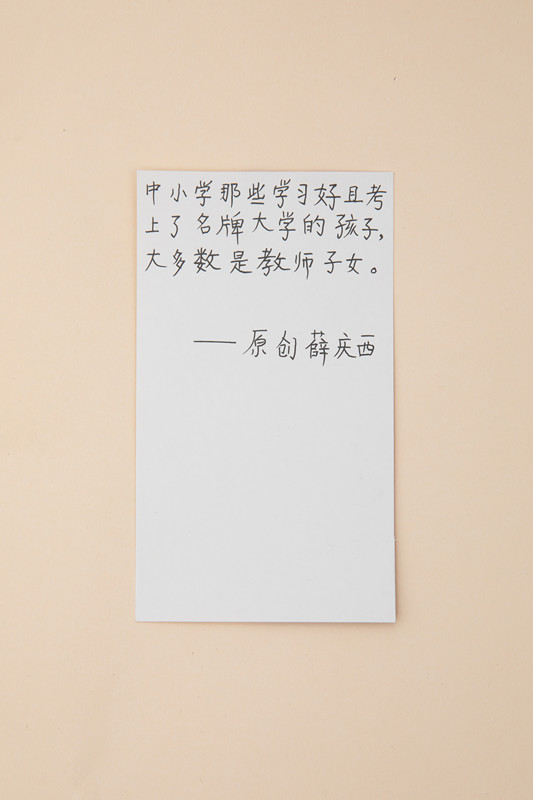 中小学那些学习好且考
上了名牌大学的孩子,
大多数是教师子女。
——原创薛庆西